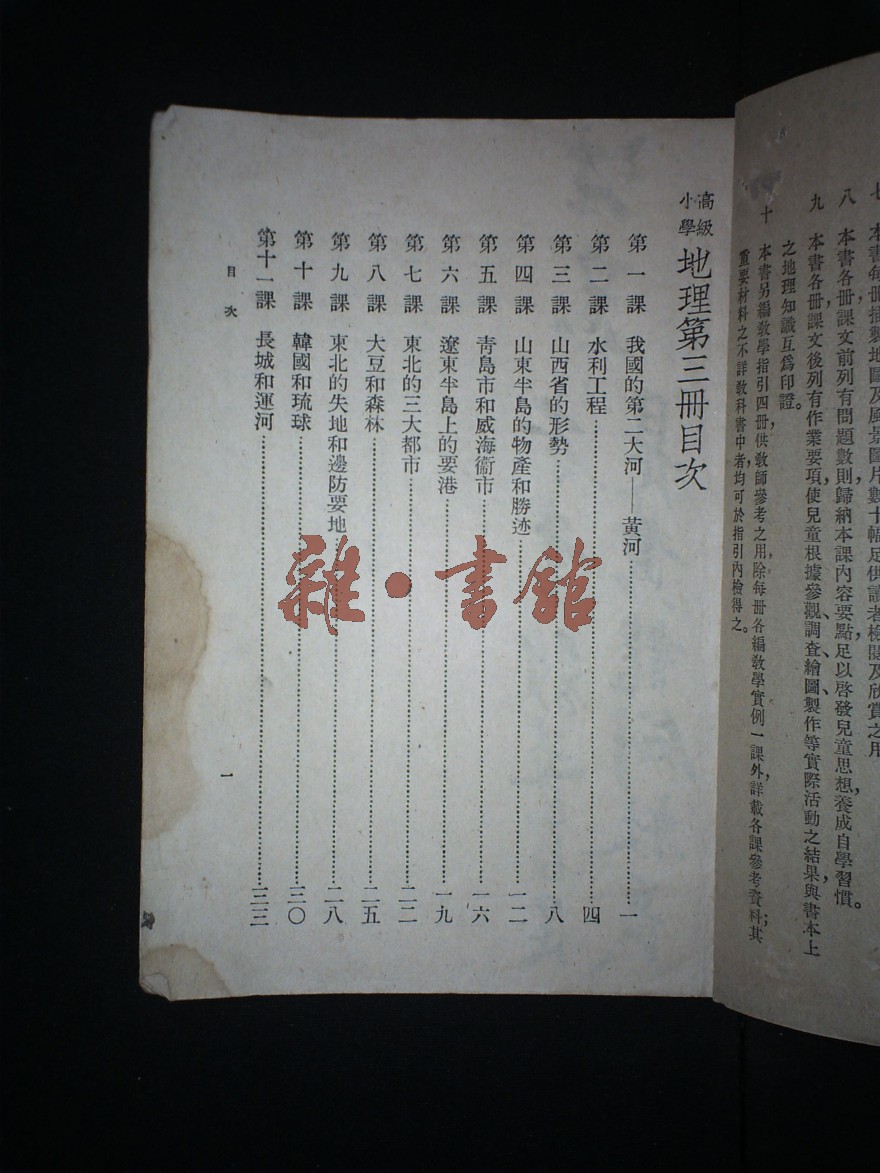 七 本書每冊插製地圖及風景圖片數十幅足供讀者檢閱及欣賞之用
八 本書各冊課文前列有問題數則歸納本課內容要點足以啓發兒童思想，養成自學習慣。
九 本書各冊課文後列有作業要項，使兒童根據參觀、調查、繪圖、製作等實際活動之結果，與書本上
之地理知識互爲印證。
十 本書另編教學指引四冊，供教師參考之用，除每冊各編教學實例一課外，詳載各課參考資料；其
重要材料之不詳教科書中者，均可於指引內檢得之。
高級小學 地理第三冊目次
第一課 我國的第二大河——黃河……一
第二課 水利工程……四
第三課 山西省的形勢……八
第四課 山東半島的物產和勝迹……一二
第五課 靑島市和威海衞市……一六
第六課 遼東半島上的要港……一九
第七課 東北的三大都市……二二
第八課 大豆和森林……二五
第九課 東北的失地和邊防要地……二八
第十課 韓國和琉球……三〇
第十一課 長城和運河……三三
目次
一
雜·書館